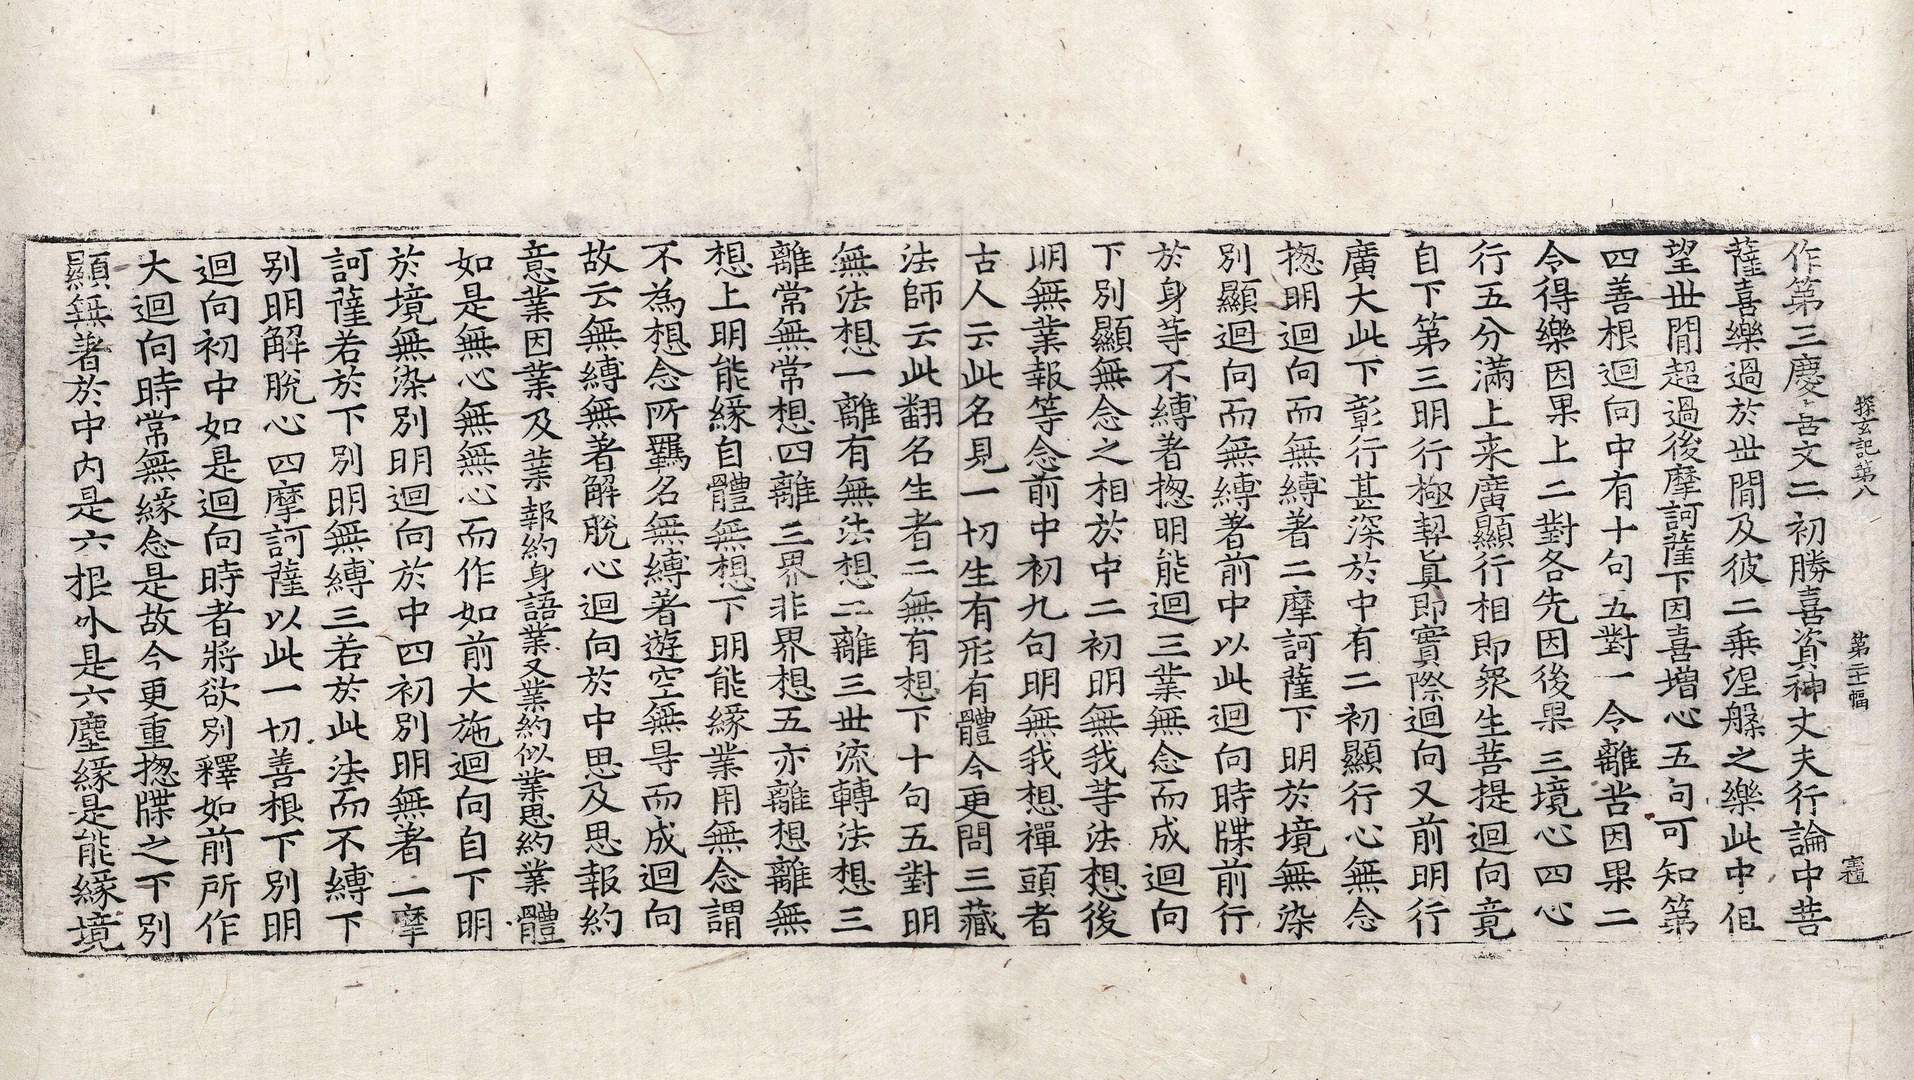 探玄記第八 第二十幅 宔
作第三慶善文二初勝喜資神丈夫行論中菩
薩喜樂過於世間及彼二乗涅槃之樂此中但
望世間超過後摩訶薩下因喜増心五句可知第
四善根迴向中有十句五對一令離苦因果二
令得樂因果上二對各先因後果三境心四心
行五分滿上来廣顯行相即衆生菩提迴向竟
自下第三明行極契真即實際迴向又前明行
廣大此下彰行甚深於中有二初顯行心無念
揔明迴向而無縛著二摩訶薩下明於境無染
別顯迴向而無縛著前中以此迴向時牒前行
於身等不縛著揔明能迴三業無念而成迴向
下別顯無念之相於中二初明無我等法想後
明無業報等念前中初九句明無我想禪頭者
古人云此名見一切生有形有體今更問三藏
法師云此翻名生者二無有想下十句五對明
無法想一離有無法想二離三世流轉法想三
離常無常想四離三界非界想五亦離想離無
想上明能緣自體無想下明能緣業用無念謂
不為想念所羈名無縛著遊空無㝵而成迴向
故云無縛無著解脫心迴向於中思及思報約
意業因業及業報約身語業又業約似業思約業體
如是無心無無心而作如前大施迴向自下明
於境無染別明迴向於中四初別明無著一摩
訶薩若於下別明無縛三若於此法而不縛下
別明解脫心四摩訶薩以此一切善根下別明
迴向初中如是迴向時者將欲別釋如前所作
大迴向時常無緣念是故今更重揔牒之下別
顯無著於中内是六根外是六塵緣是能緣境